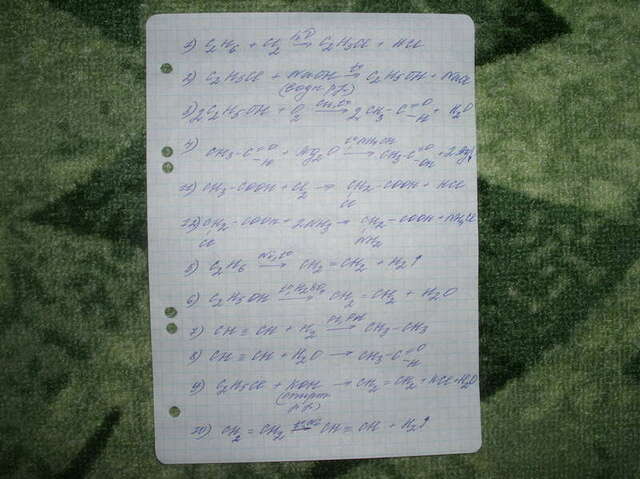 1) C2H6 + Cl2 → C2H5Cl + HCl
2) C2H5Cl + NaOH t° → C2H5OH + NaCl
(водн р.р.)
3) 2C2H5OH + O2 Cu, t° → 2CH3-C=O-H + H2O
4) CH3-C=O-H + Ag2O t° NH4OH → CH3-C=O-OH + 2Ag↓
11) CH3-COOH + Cl2 → CH2-COOH + HCl
Cl
12) CH2-COOH + 2NH3 → CH2-COOH + NH4Cl
Cl NH2
5) C2H6 Ni, t° → CH2=CH2 + H2↑
6) C2H5OH t° H2SO4 → CH2=CH2 + H2O
7) CH≡CH + H2 Pt, Pd → CH3-CH3
8) CH≡CH + H2O → CH3-C=O-H
9) C2H5Cl + KOH → CH2=CH2 + KCl + H2O
(спирт
р.р.)
10) CH2=CH2 → CH≡CH + H2↑